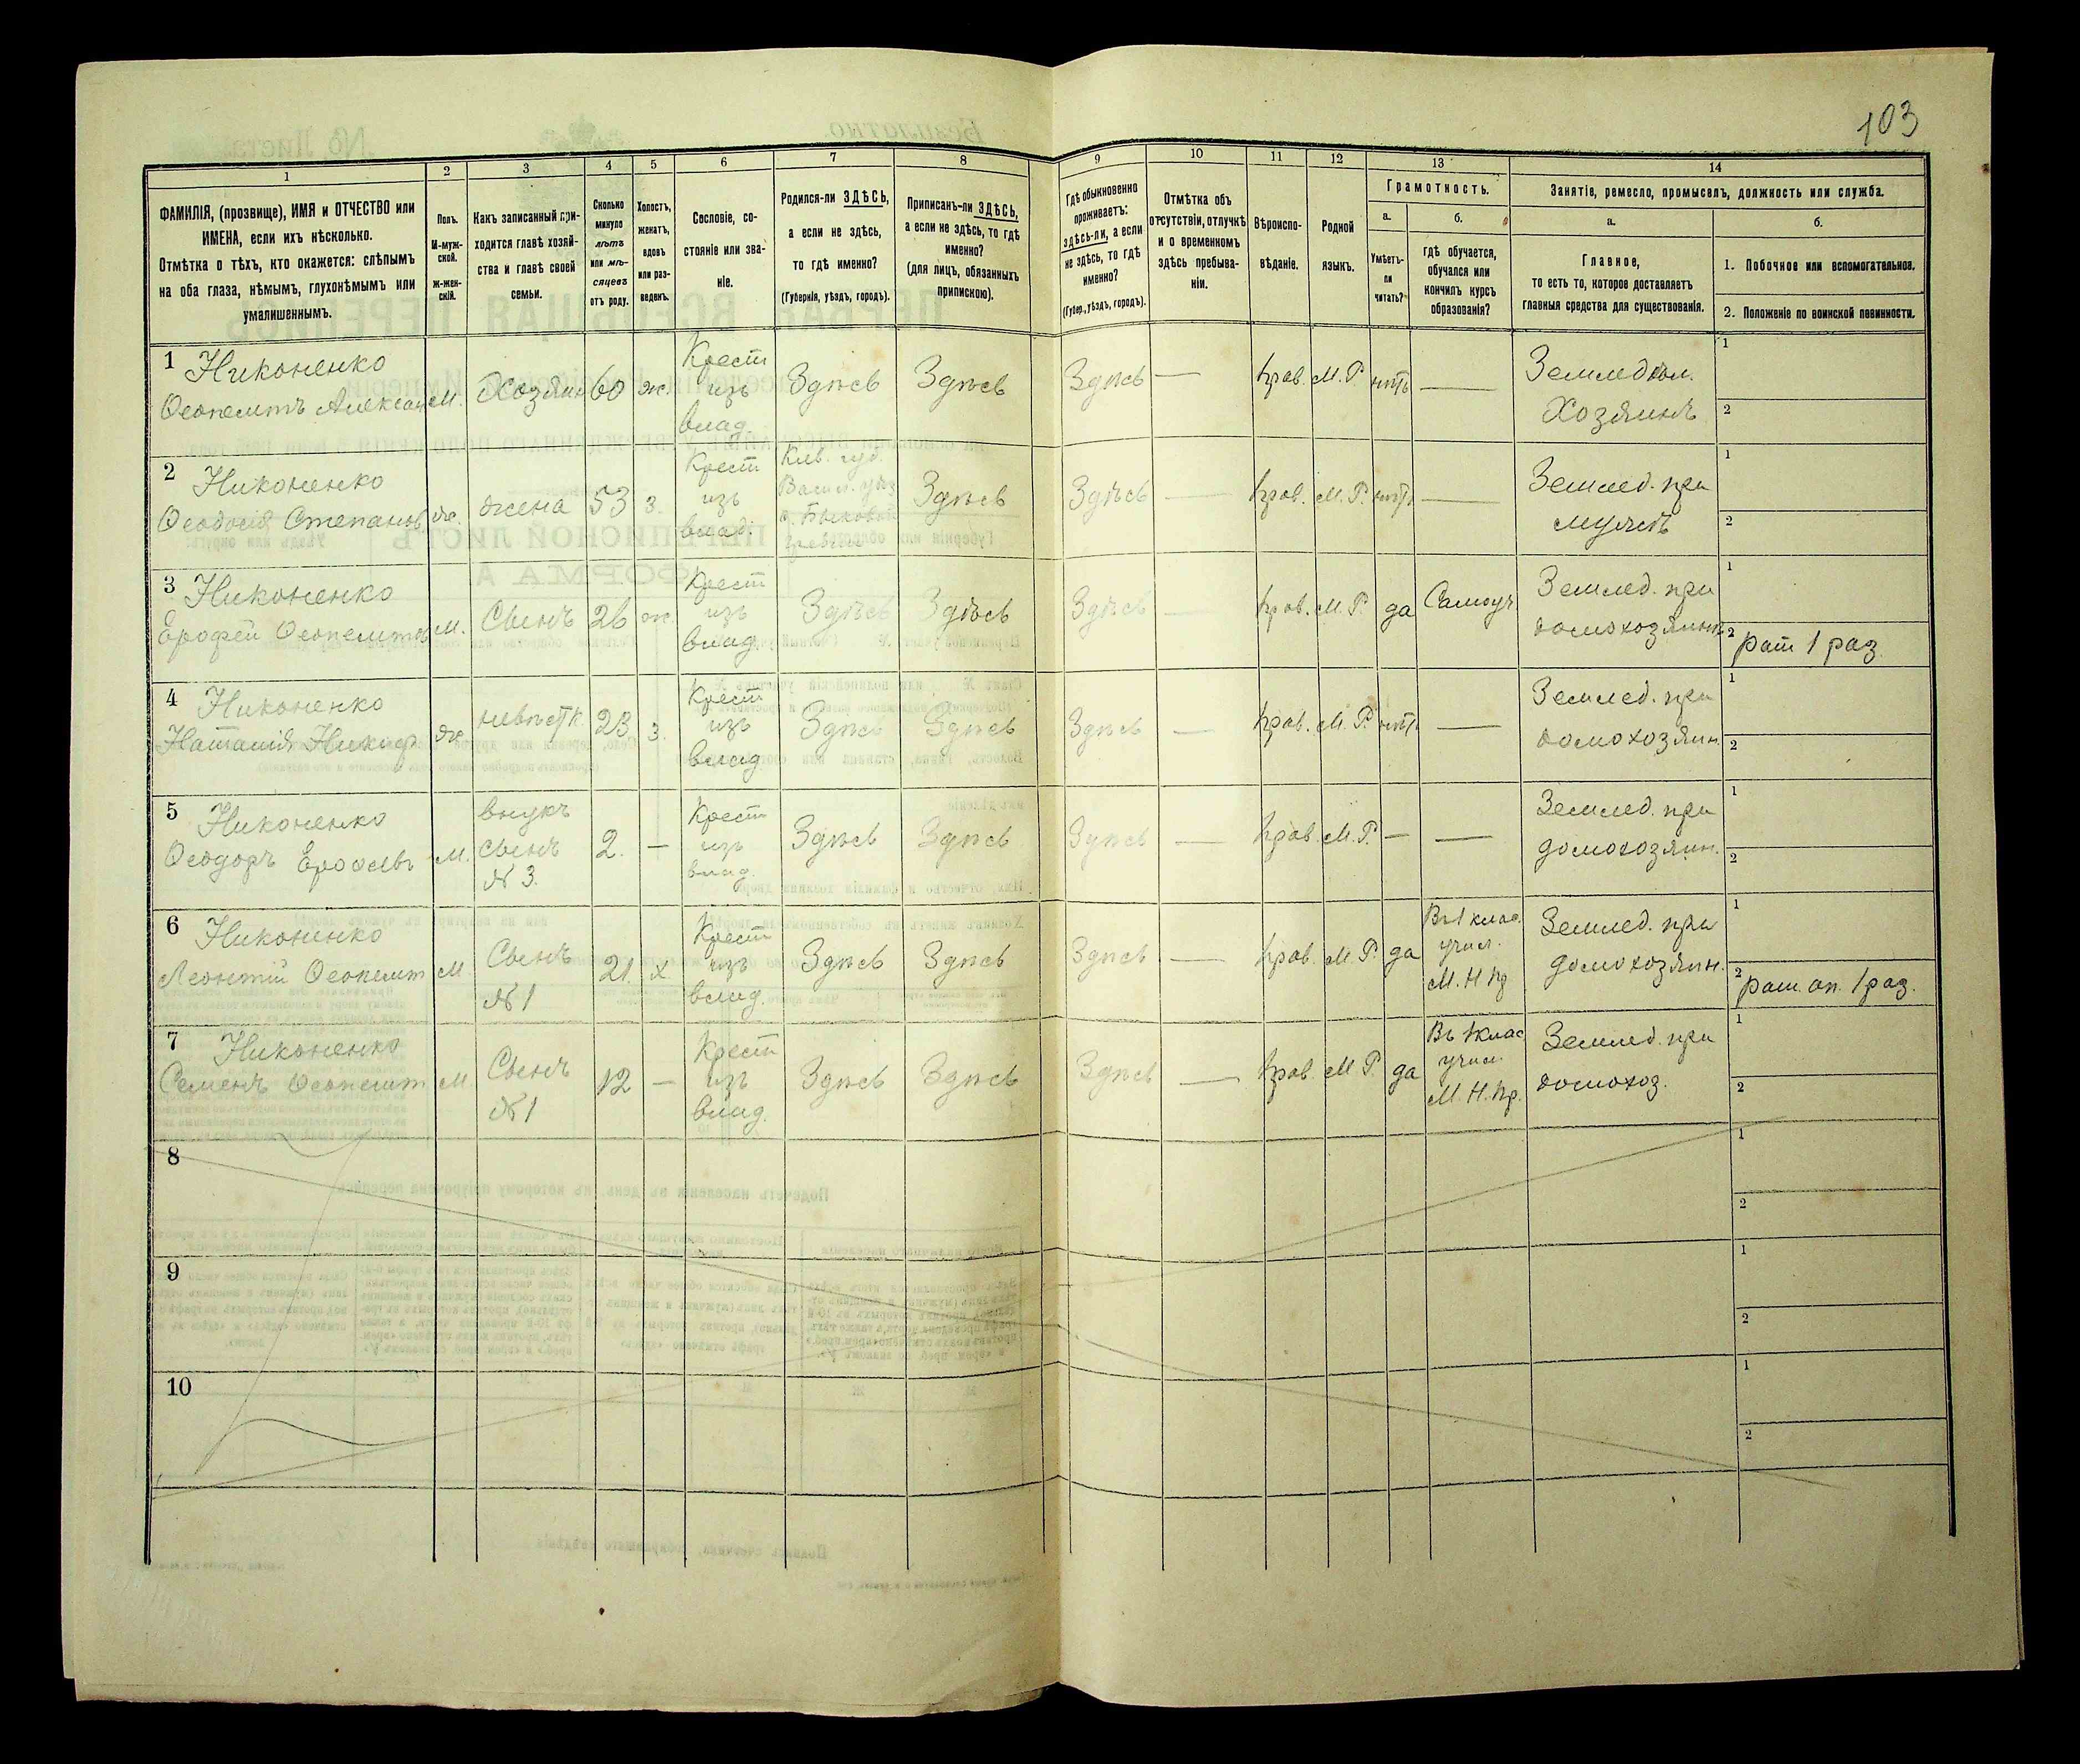 103
1
2
3
4
5
6
7
8
9
10
11
12
13
14
ФАМИЛІЯ, (прозвище), ИМЯ и ОТЧЕСТВО или
ИМЕНА, если ихъ нѣсколько.
Отмѣтка о тѣхъ, кто окажется: слѣпымъ
на оба глаза, нѣмымъ, глухонѣмымъ или
умалишеннымъ.
Полъ.
М-муж-
ской.
ж-жен-
скій.
Какъ записанный при-
ходится главѣ хозяй-
ства и главѣ своей
семьи.
Сколько
минуло
лѣтъ
или мѣ-
сяцевъ
отъ роду.
Холостъ,
женатъ,
вдовъ
или раз-
веденъ.
Сословіе, со-
стояніе или зва-
ніе.
Родился-ли ЗДѢСЬ,
а если не здѣсь,
то гдѣ именно?
(Губернія, уѣздъ, городъ).
Приписанъ-ли ЗДѢСЬ,
а если не здѣсь, то гдѣ
именно?
(для лицъ, обязанныхъ
припискою).
Гдѣ обыкновенно
проживаетъ:
здѣсь-ли, а если
не здѣсь, то гдѣ
именно?
(Губер., уѣздъ, городъ).
Отмѣтка объ
отсутствіи, отлучкѣ
и о временномъ
здѣсь пребыва-
ніи.
Вѣроиспо-
вѣданіе.
Родной
языкъ.
Грамотность.
а.
б.
Умѣетъ-
ли
читать?
гдѣ обучается,
обучался или
кончилъ курсъ
образованія?
Занятіе, ремесло, промыселъ, должность или служба.
а.
б.
Главное,
то есть то, которое доставляетъ
главныя средства для существованія.
1. Побочное или вспомогательное.
2. Положеніе по воинской повинности.
1 Никоненко
Феопемптъ Алексан
М.
Хозяин
60
ж.
Крест
изъ
влад.
Здѣсь
Здѣсь
Здѣсь
—
Прав.
М. Р.
нѣтъ
—
Землед
Хозяинъ
1
2
2 Никоненко
Феодосія Степанов
ж.
жена
53
з.
Крест
изъ
влад.
Кіев. губ.
Васил. уѣз
Здѣсь
Здѣсь
—
Прав.
М. Р.
нѣтъ
—
Землед. при
мужѣ
1
2
3 Никоненко
Ерофей Феопемптов
М.
Сынъ
26
ж.
Крест
изъ
влад
Здѣсь
Здѣсь
Здѣсь
—
Прав.
М. Р.
да
Самоуч
Землед. при
домохозяинѣ
1
2 рат 1 раз.
4 Никоненко
Наталія Никиф
ж.
невѣстк
23
з.
Крест
изъ
влад
Здѣсь
Здѣсь
Здѣсь
—
Прав.
М. Р.
нѣтъ
—
Землед. при
домохозяин.
1
2
5 Никоненко
Феодоръ Ерофѣевъ
М.
внукъ
сынъ
№ 3.
2.
—
Крест
изъ
влад.
Здѣсь
Здѣсь
Здѣсь
—
Прав.
М. Р.
—
—
Землед. при
домохозяин.
1
2
6 Никоненко
Леонтій Феопемпт
М
Сынъ
№ 1
21.
х
Крест
изъ
влад.
Здѣсь
Здѣсь
Здѣсь
—
Прав.
М. Р.
да
Въ 1 клас.
учил.
М. Н. Пр
Землед. при
домохозяин.
1
2 рат. оп. 1 раз.
7 Никоненко
Семенъ Феопемпт
М.
Сынъ
№ 1
12
—
Крест
изъ
влад.
Здѣсь
Здѣсь
Здѣсь
—
Прав.
М. Р.
да
Въ 1 клас
учил.
М. Н. Пр.
Землед. при
домохоз.
1
2
8
1
2
9
1
2
10
1
2